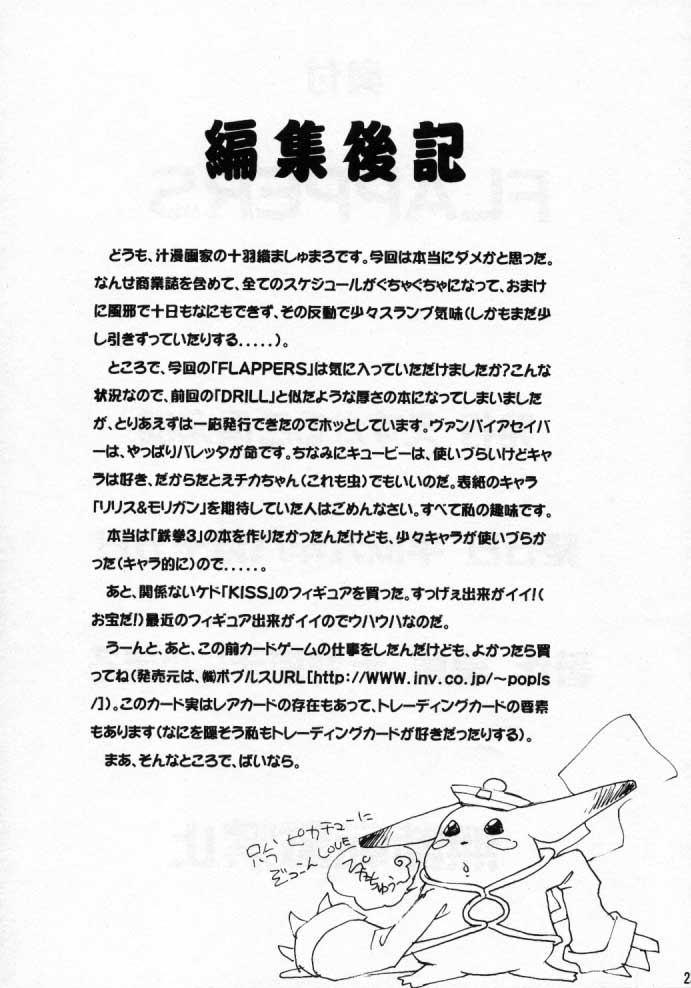 編集後記
どうも、汁漫画家の十羽織ましゅまろです。今回は本当にダメかと思った。
なんせ商業誌を含めて、全てのスケジュールがぐちゃぐちゃになって、おまけ
に風邪で十日もなにもできず、その反動で少々スランプ気味(しかもまだ少
し引きずっていたりする.....)。
ところで、今回の「FLAPPERS」は気に入っていただけましたか?こんな
状況なので、前回の「DRILL」と似たような厚さの本になってしまいました
が、とりあえずは一応発行できたのでホッとしています。ヴァンパイアセイバ
ーは、やっぱりバレッタが命です。ちなみにキュービーは、使いづらいけどキャ
ラは好き、だからたとえチカちゃん(これも虫)でもいいのだ。表紙のキャラ
「リリス&モリガン」を期待していた人はごめんなさい。すべて私の趣味です。
本当は「鉄拳3」の本を作りたかったんだけども、少々キャラが使いづらか
った(キャラ的に)ので.....。
あと、関係ないケド「KISS」のフィギュアを買った。すっげぇ出来がイイ!(
お宝だ!)最近のフィギュア出来がイイのでウハウハなのだ。
うーんと、あと、この前カードゲームの仕事をしたんだけども、よかったら買
ってね(発売元は、㈱ポプルスURL[http://WWW.inv.co.jp/~popls
/])。このカード実はレアカードの存在もあって、トレーディングカードの要素
もあります(なにを隠そう私もトレーディングカードが好きだったりする)。
まあ、そんなところで、ばいなら。
ピカチューに
ぞっこんLOVE
2